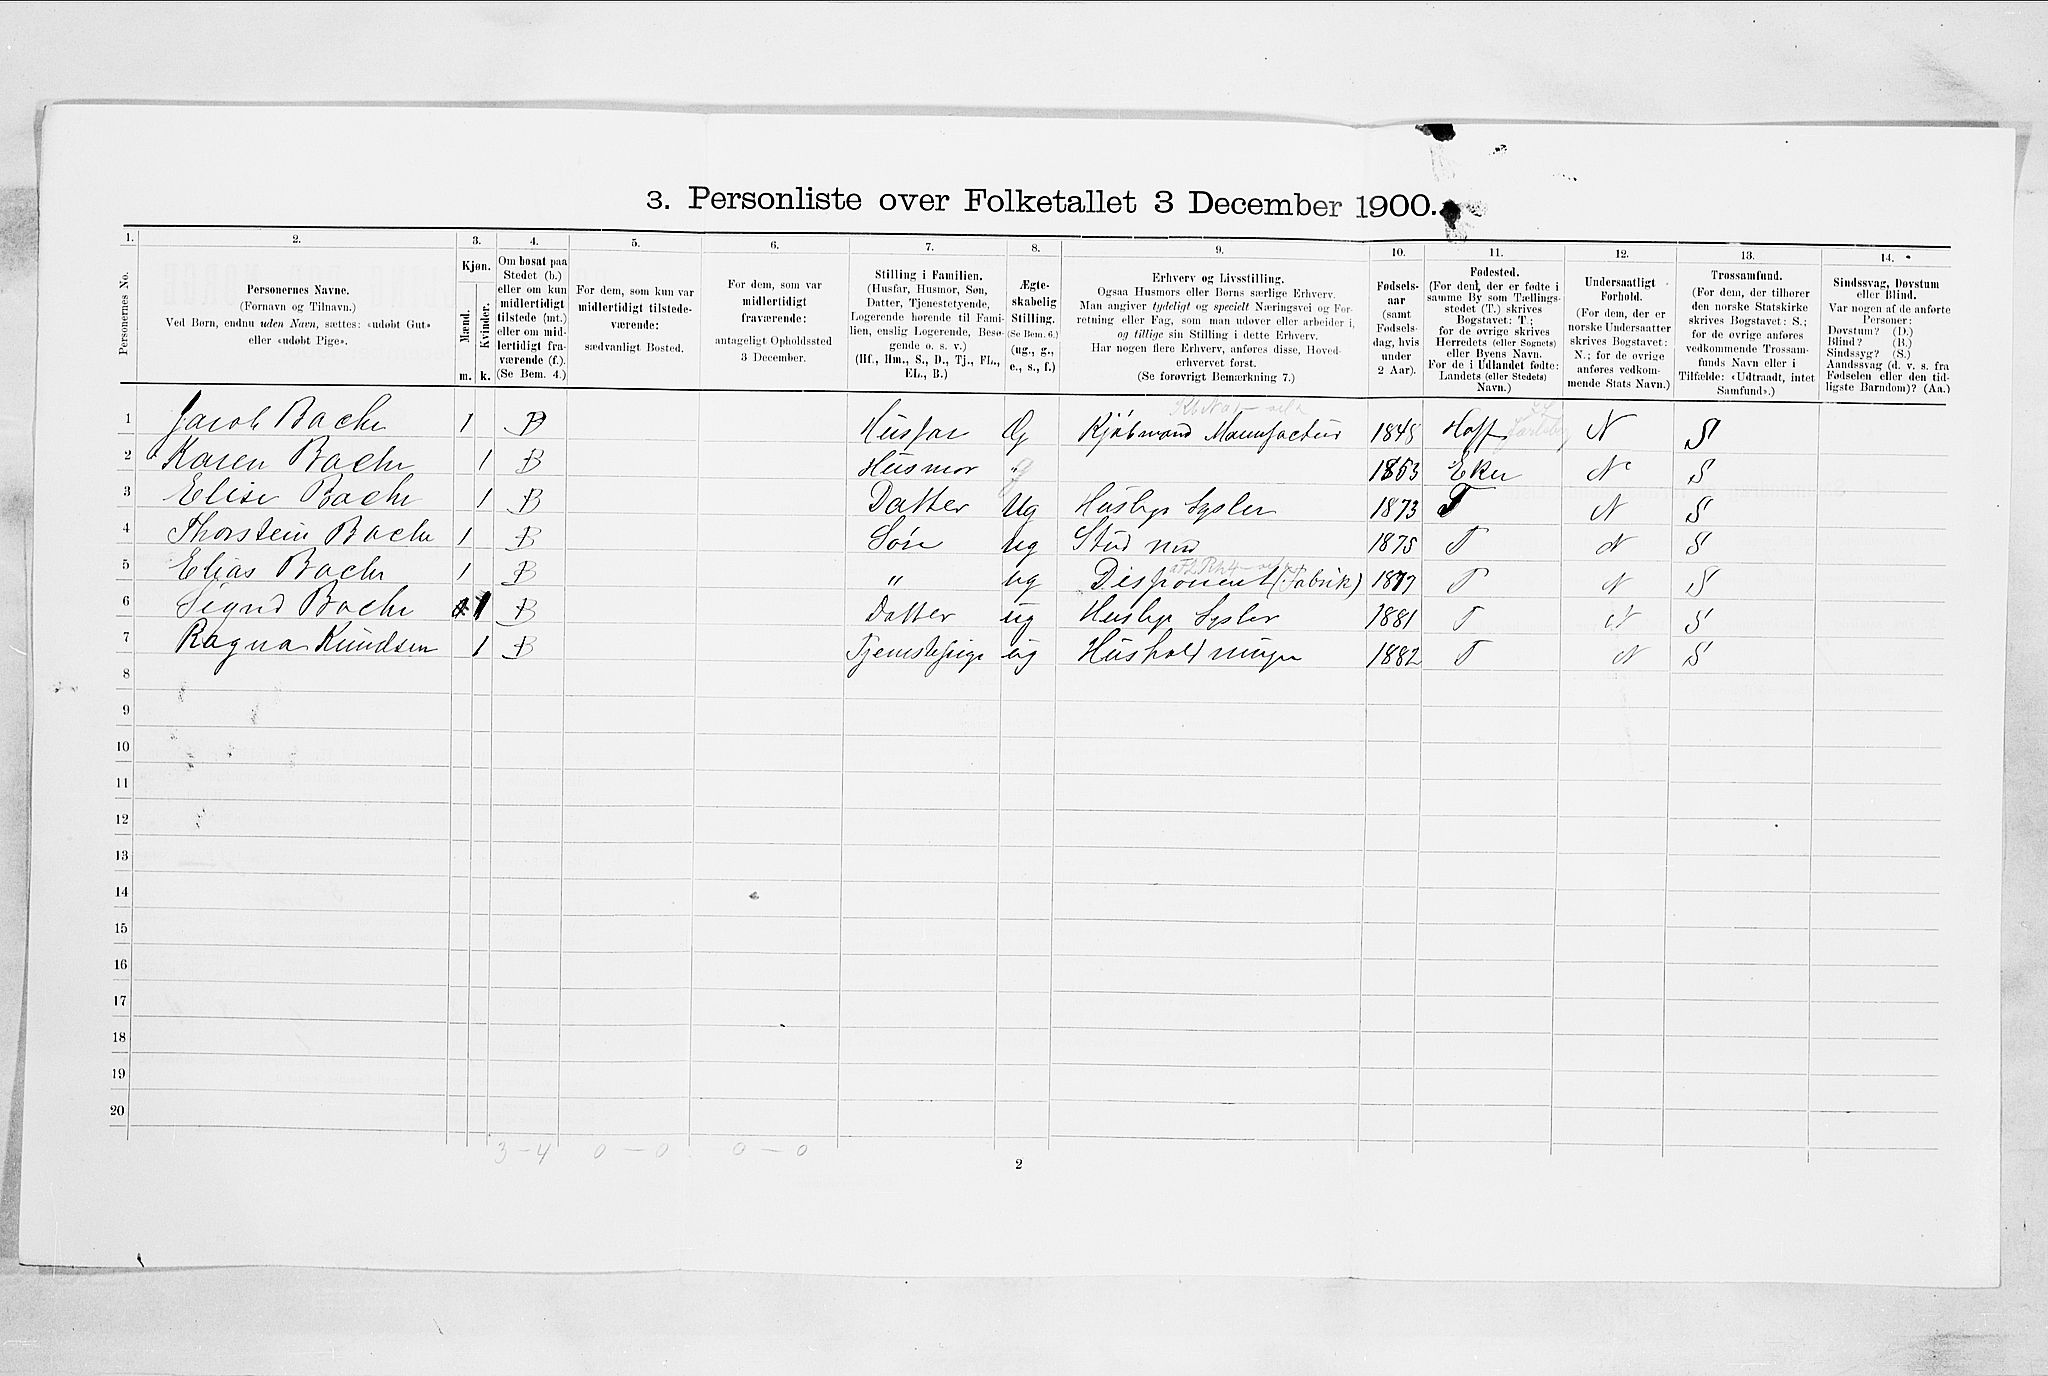 3. Personliste over Folketallet 3 December 1900.
1. 2. 3. 4. 5. 6. 7. 8. 9. 10. 11. 12. 13. 14.
Personernes No.
Personernes Navne.
(Fornavn og Tilnavn.)
Ved Børn, endnu uden Navn, sættes: «udøbt Gut»
eller «udøbt Pige».
Kjøn.
Mænd.
Kvinder.
m. k.
Om bosat paa
Stedet (b.)
eller om kun
midlertidigt
tilstede (mt.)
eller om mid-
lertidigt fra-
værende (f.).
(Se Bem. 4.)
For dem, som kun var
midlertidigt tilstede-
værende:
sædvanligt Bosted.
For dem, som var
midlertidigt
fraværende:
antageligt Opholdssted
3 December.
Stilling i Familien.
(Husfar, Husmor, Søn,
Datter, Tjenestetyende,
Logerende hørende til Fami-
lien, enslig Logerende, Besø-
gende o. s. v.)
(Hf., Hm., S., D., Tj., FL.,
EL., B.)
Ægte-
skabelig
Stilling.
(Se Bem. 6.)
(ug., g.,
e., s., f.)
Erhverv og Livsstilling.
Ogsaa Husmors eller Børns særlige Erhverv.
Man angiver tydeligt og specielt Næringsvei og For-
retning eller Fag, som man udøver eller arbeider i,
og tillige sin Stilling i dette Erhverv.
Har nogen flere Erhverv, anføres disse, Hoved-
erhvervet først.
(Se forøvrigt Bemærkning 7.)
Fødsels-
aar
(samt
Fødsels-
dag, hvis
under
2 Aar).
Fødested.
(For dem, der er fødte i
samme By som Tællings-
stedet (T.) skrives
Bogstavet: T.;
for de øvrige skrives
Herredets (eller Sognets)
eller Byens Navn.
For de i Udlandet fødte:
Landets (eller Stedets)
Navn.)
Undersaatligt
Forhold.
(For dem, der er
norske Undersaatter
skrives Bogstavet:
N.; for de øvrige
anføres vedkom-
mende Stats Navn.)
Trossamfund.
(For dem, der tilhører
den norske Statskirke
skrives Bogstavet: S.;
for de øvrige anføres
vedkommende Trossam-
funds Navn eller i
Tilfælde: «Udtraadt, intet
Samfund».)
Sindssvag, Døvstum
eller Blind.
Var nogen af de anførte
Personer:
Døvstum? (D.)
Blind? (B.)
Sindssyg? (S.)
Aandssvag (d. v. s. fra
Fødselen eller den tid-
ligste Barndom)? (Aa.)
1 Jacob Bache 1 B Husfar G Kjøbmand Manufactur 1845 Hoff N S
2 Karen Bache 1 B Husmor g 1853 Eker N S
3 Elise Bache 1 B Datter ug Huslige Sysler 1873 T N S
4 Thorstein Bache 1 B Søn ug Stud med 1875 T N S
5 Elias Bache 1 B " ug Disponent (Fabrik) 1877 T N S
6 Sigrid Bache 1 B Datter ug Huslige Sysler 1881 T N S
7 Ragna Knudsen 1 B Tjenestepige ug Husholdninger 1882 T N S
8
9
10
11
12
13
14
15
16
17
18
19
20
3 – 4 0 – 0 0 – 0
2